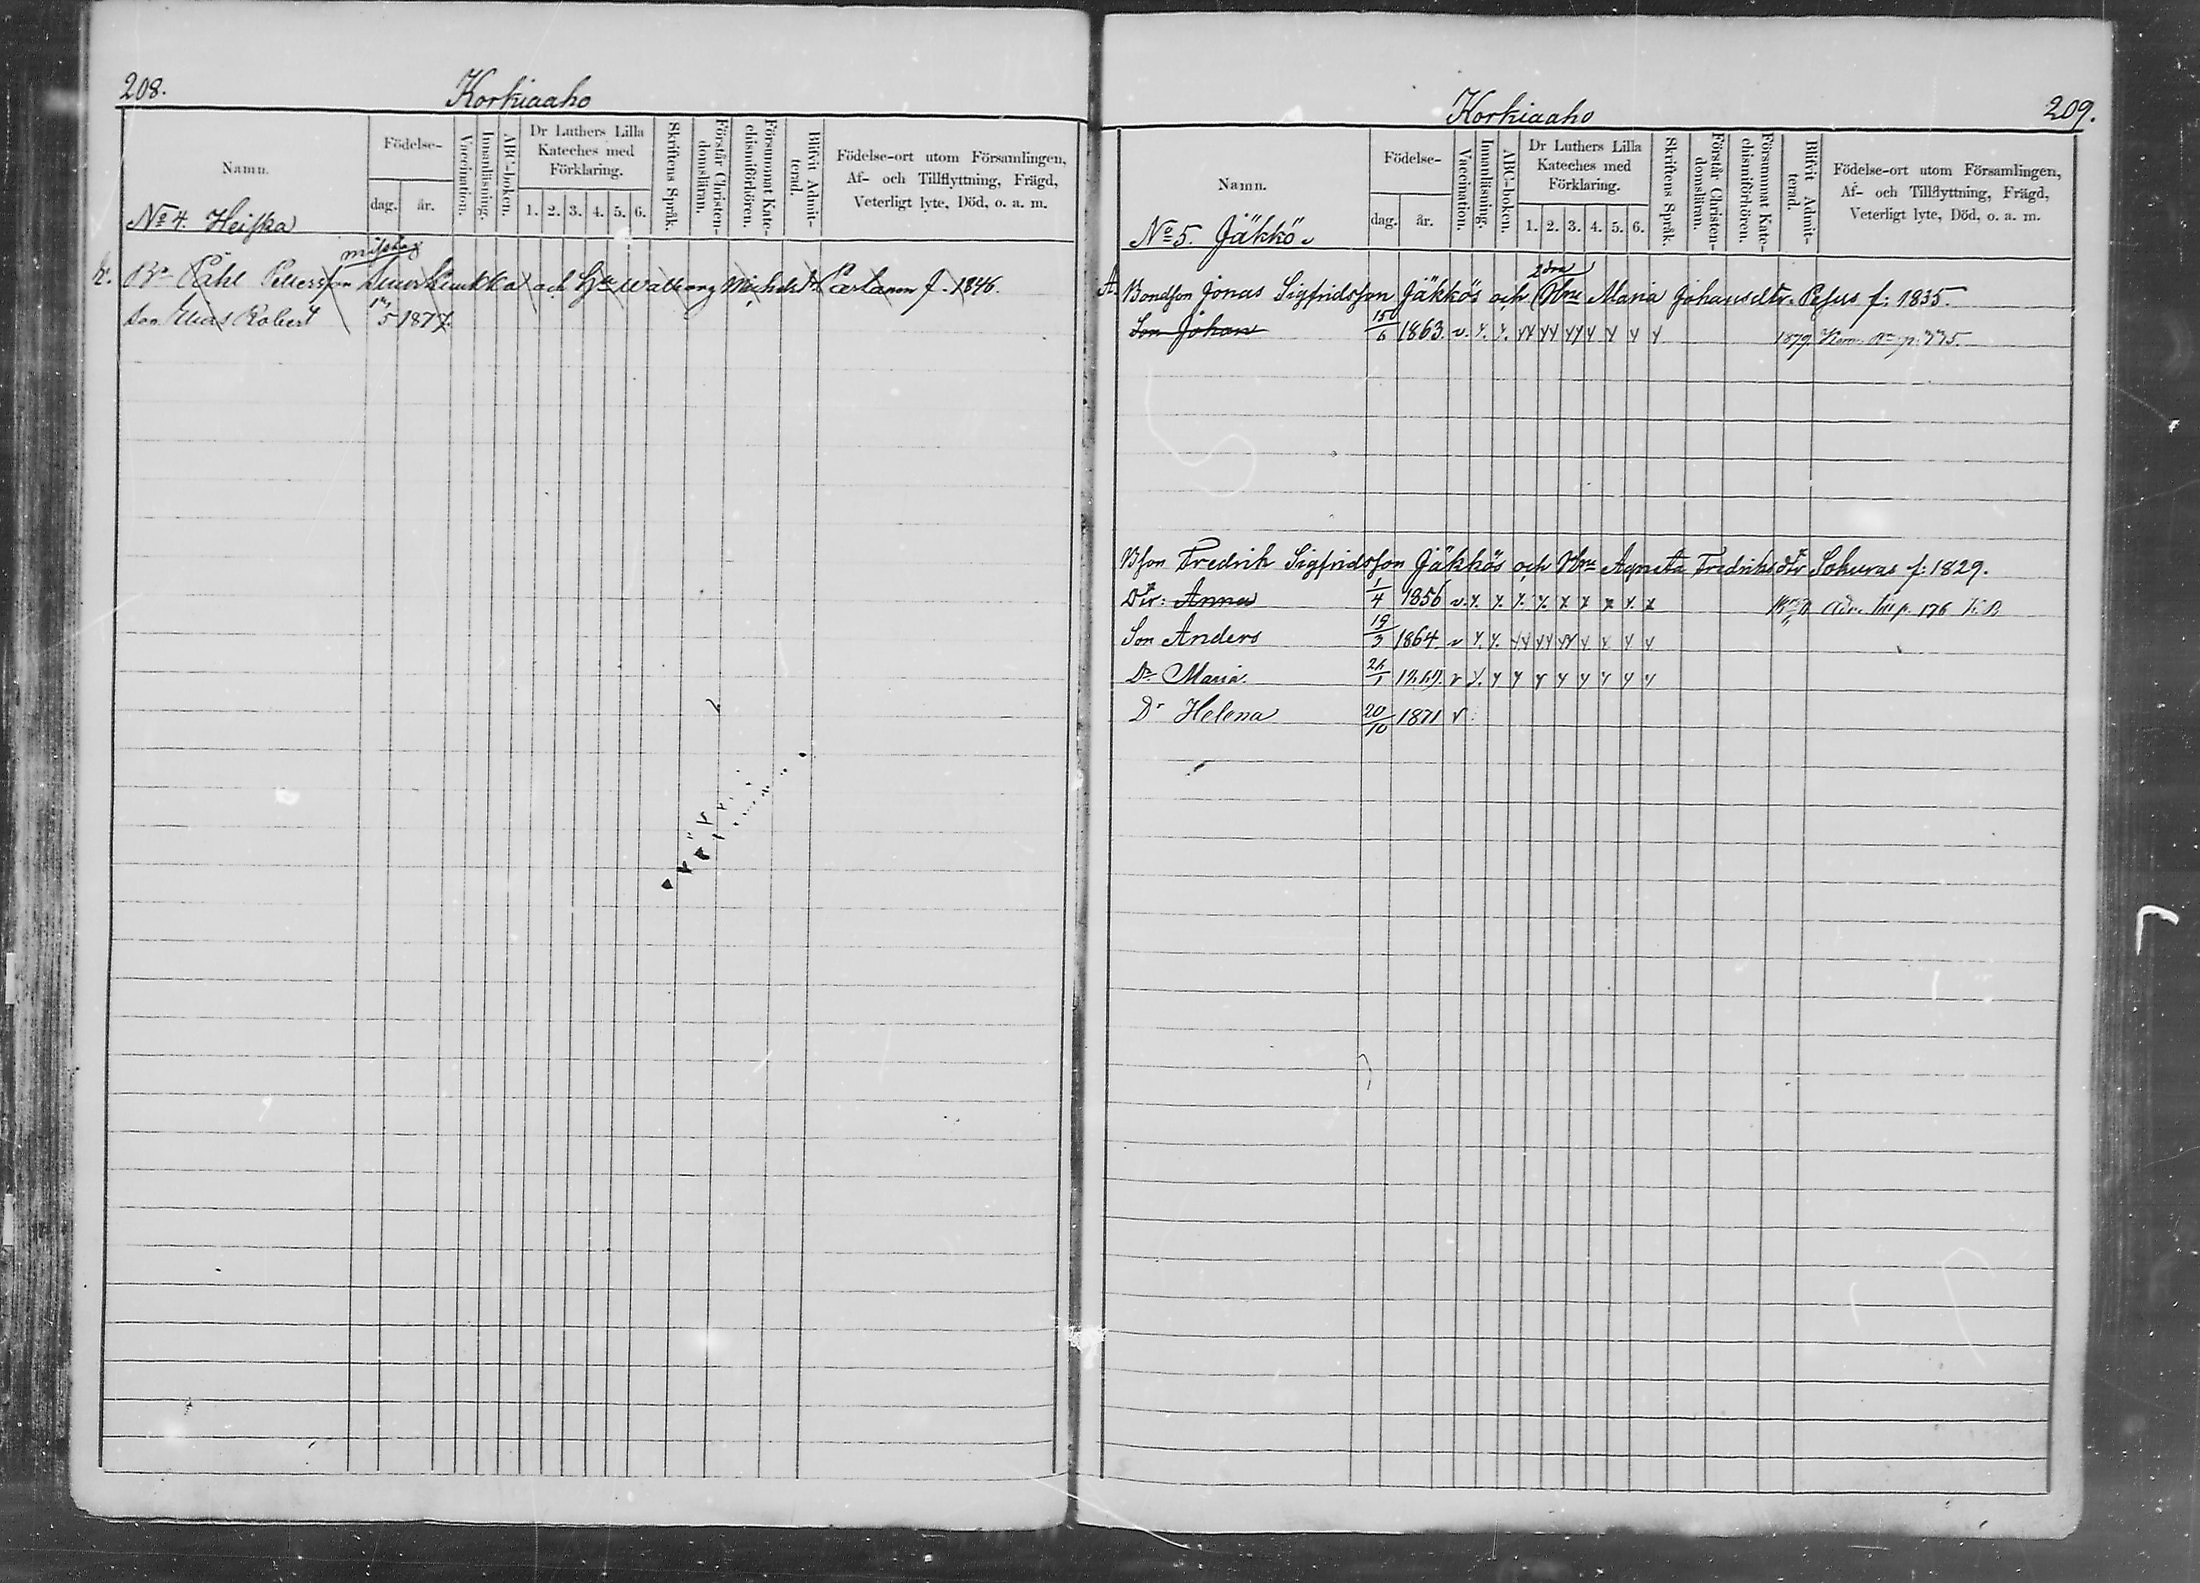 208.
Korkiaaho
Namn.
Födelse-
dag.
år.
Vaccination.
Innanläsning.
ABC-boken.
Dr Luthers Lilla
Kateches med
Förklaring.
1. 2. 3. 4. 5. 6.
Skriftens Språk.
Förstår Christen-
domsläran.
Försummat Kate-
chismiförhören.
Blifvit Admit-
terad.
Födelse-ort utom Församlingen,
Af- och Tillflyttning, Frägd,
Veterligt lyte, Död, o. a. m.
No 4. Heiska
misstag
Påhl Pettersson och Walborg Michelsdr Partanen f. 1846.
Son Elias Robert 5 1877.
209.
Korkiaaho
Namn.
Födelse-
dag.
år.
Vaccination.
Innanläsning.
ABC-boken.
Dr Luthers Lilla
Kateches med
Förklaring.
1. 2. 3. 4. 5. 6.
Skriftens Språk.
Förstår Christen-
domsläran.
Försummat Kate-
chismiförhören.
Blifvit Admit-
terad.
Födelse-ort utom Församlingen,
Af- och Tillflyttning, Frägd,
Veterligt lyte, Död, o. a. m.
No 5. Jäkkö.
2dra
A. Bondson Jonas Sigfridsson Jäkkös och Hru Maria Johansdtr Pesus f: 1835.
Son Johan 15/6 1863. v. y. y. yy yy yy y y y y 1879. p. 775.
Bson Fredrik Sigfridsson Jäkkös och Hru Agneta Fredriksdtr Sokuras f: 1829.
Dtr: Anna 1/4 1856 v. y. y. y. y. x x x y. x till p. 176
Son Anders 19/3 1864 v y. y. yy yy yy y y y y
Dr Maria. v y. y y y y y y y y
Dr Helena 20/10 1871 v